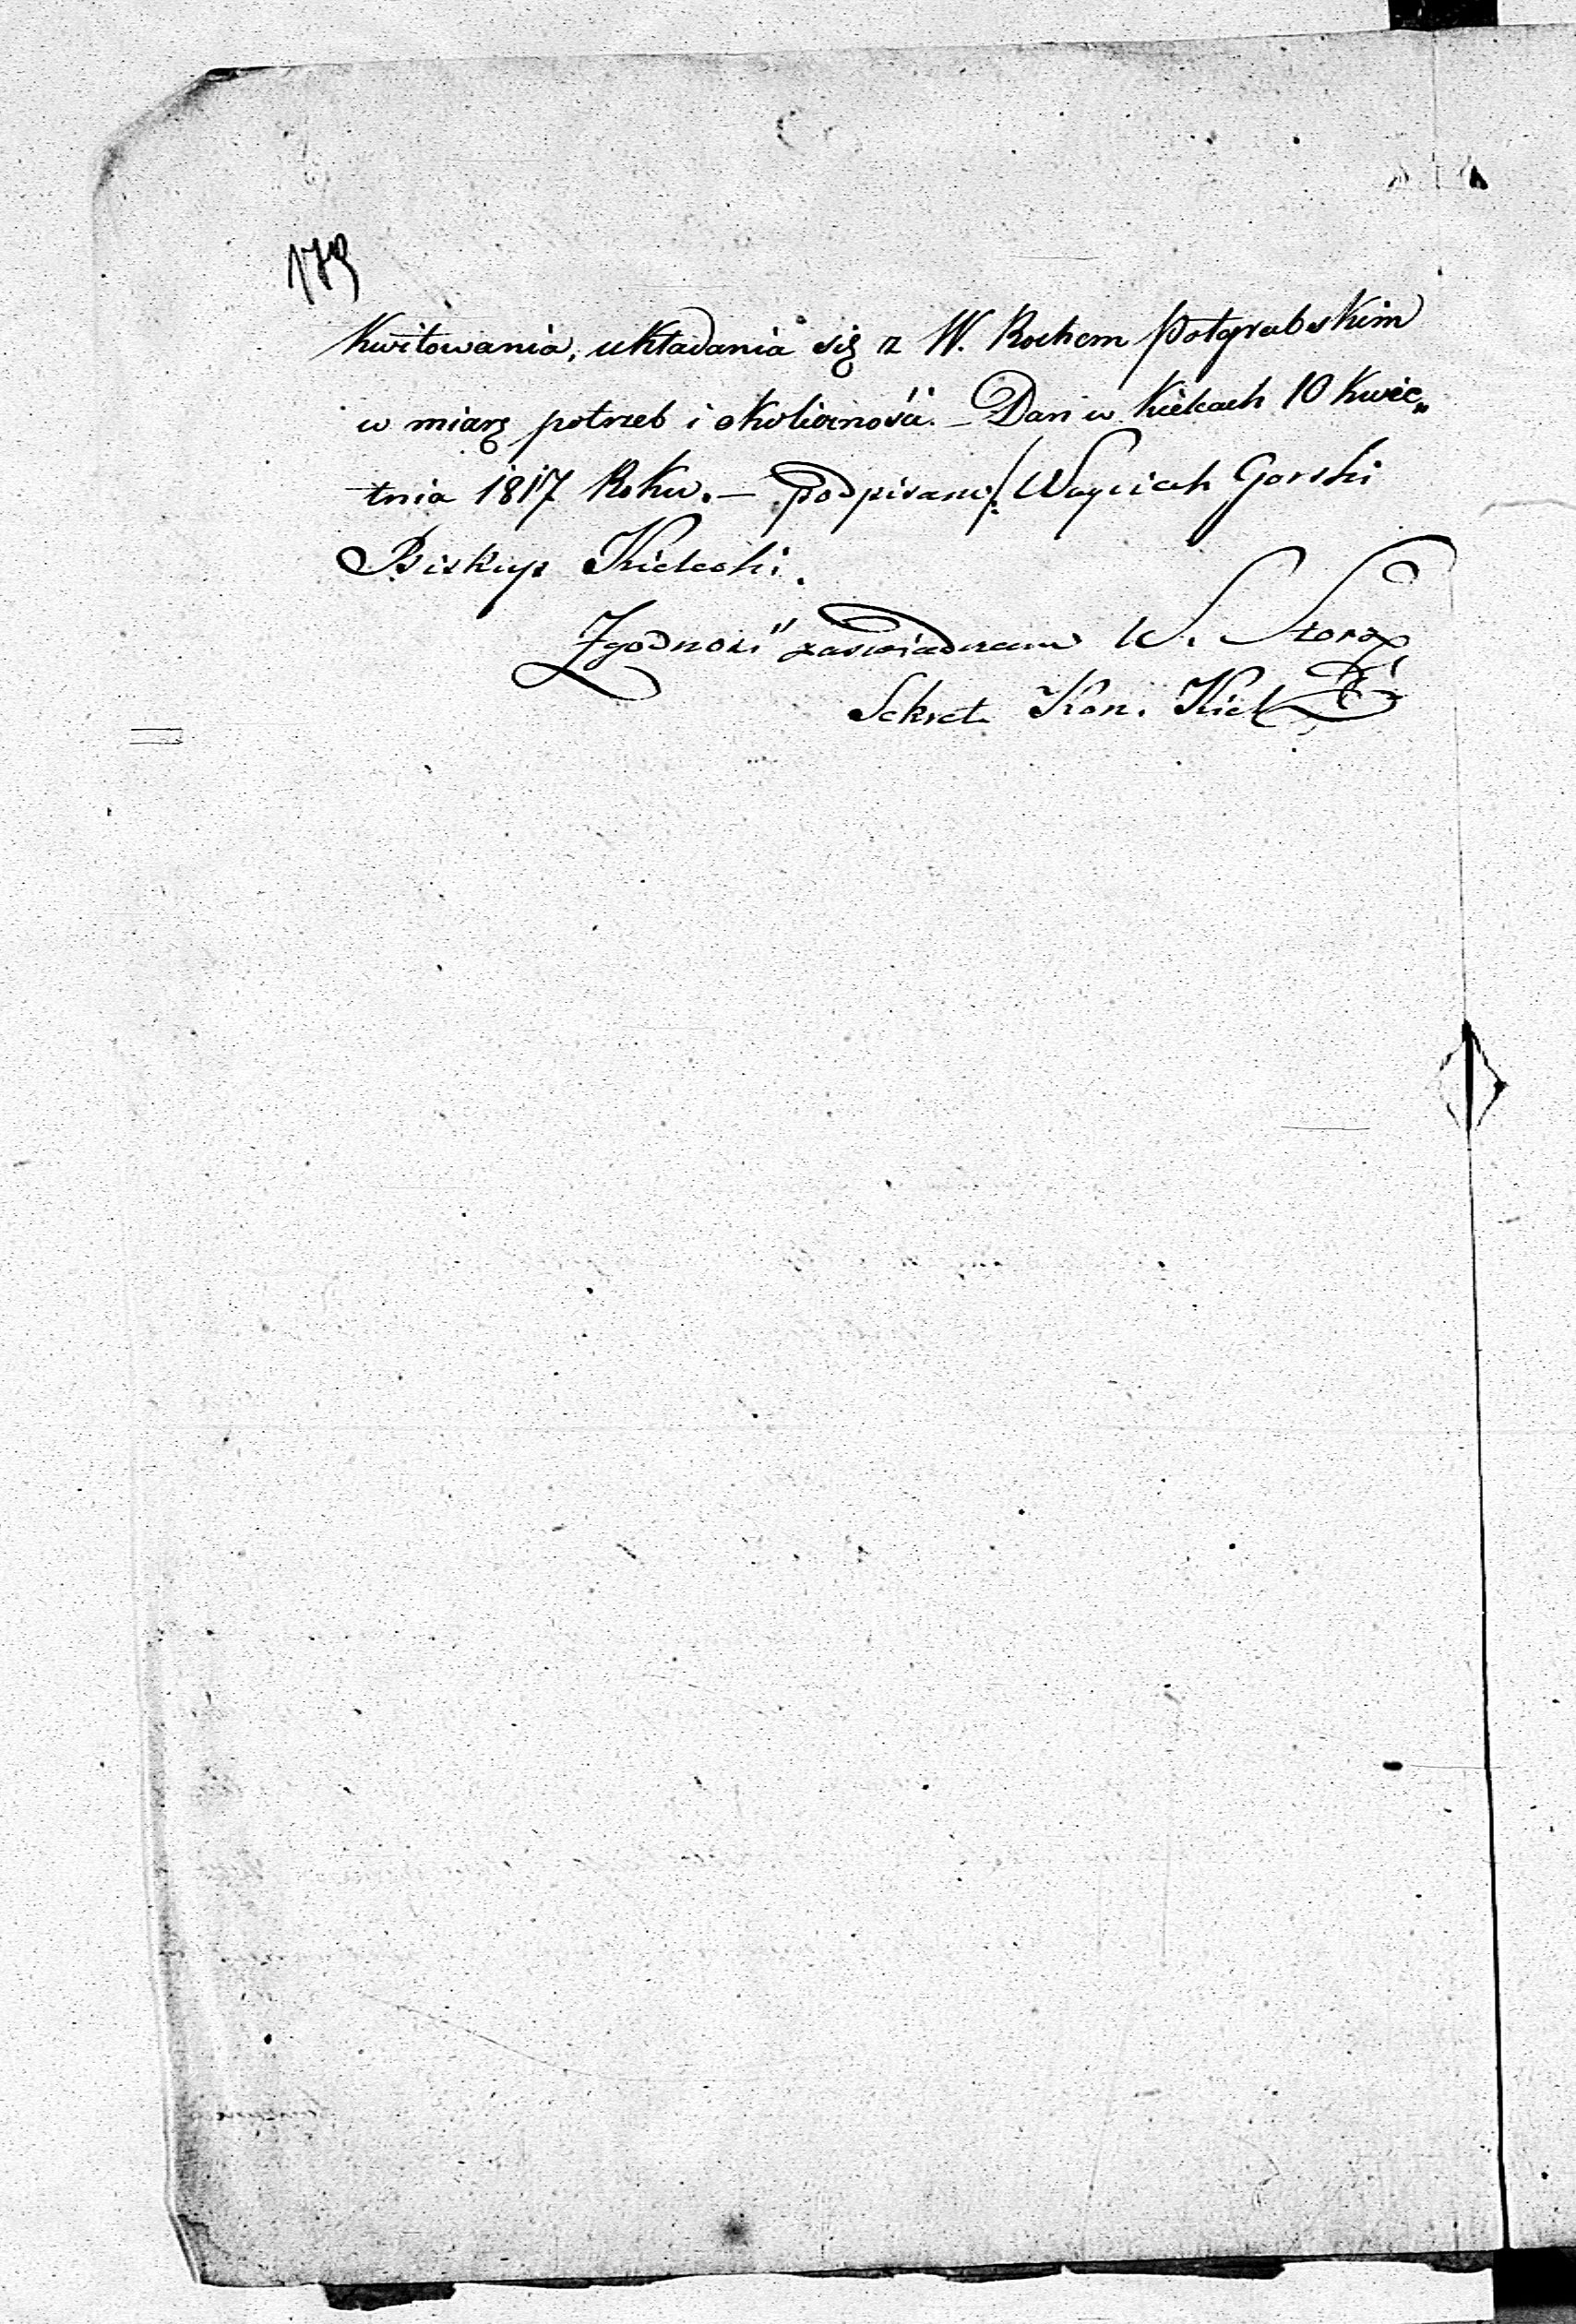 179
Kwitowania, układania się z W. Rochem Półgrabskim
w miarę potrzeb i okoliczności. – Dan w Kielcach 10 Kwie„
tnia 1817 Roku. – podpisano/: Woyciech Gorski
Biskup Kielecki.
Zgodność zaświadczam W. Storz
Sekret. Kon. Kiel